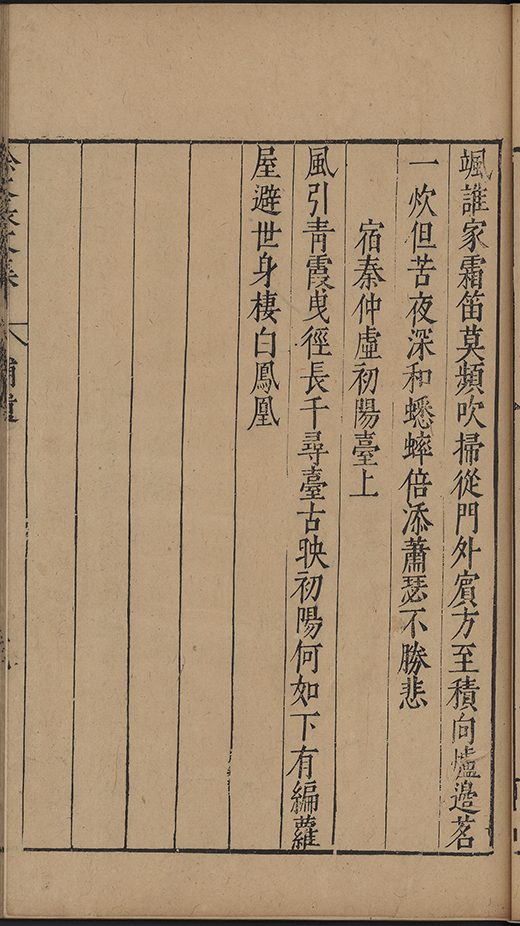 颯誰家霜笛莫頻吹掃從門外賓方至積向爐邊茗
一炊但苦夜深和蟋蟀倍添蕭瑟不勝悲
宿秦仲虛初陽臺上
風引青霞曳徑長千尋臺古映初陽何如下有編蘿
屋避世身棲白鳳凰